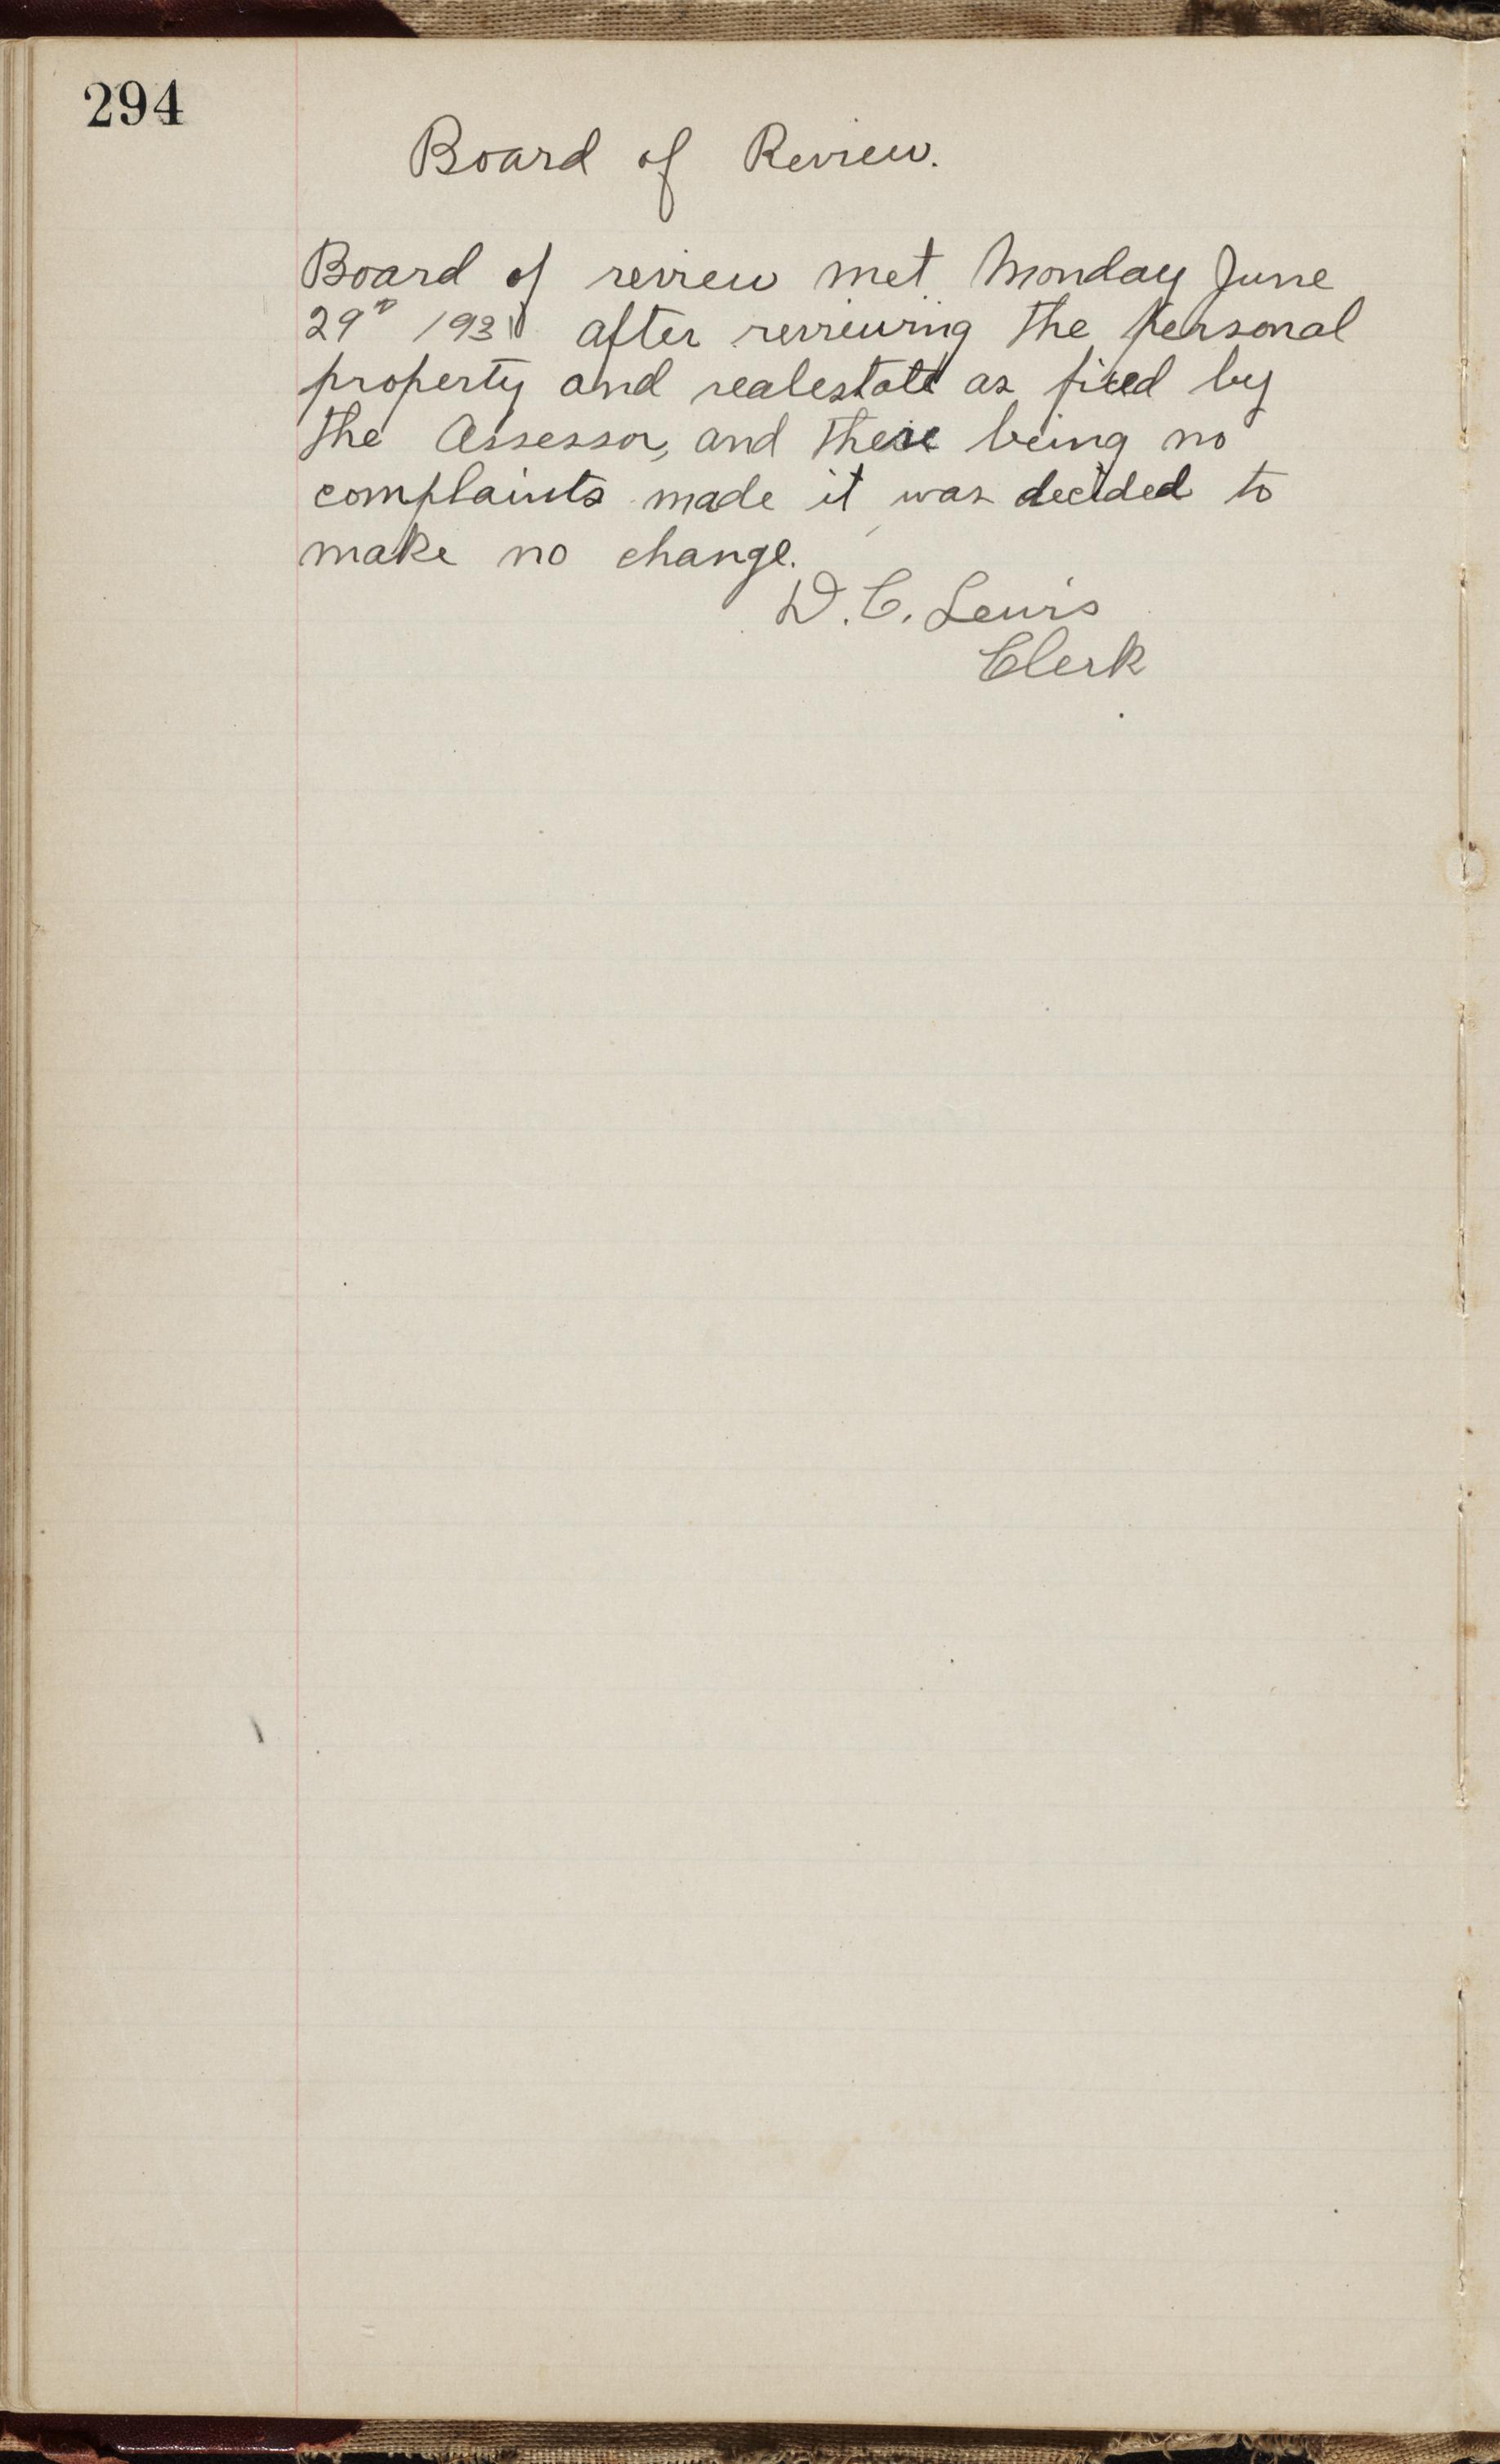 294
Board of Review.
Board of review met Monday June
29th 1931 after reviewing the personal
property and realestate as fixed by
the Assessor, and there being no
complaints made it was decided to
make no change.
D. C. Lewis
Clerk